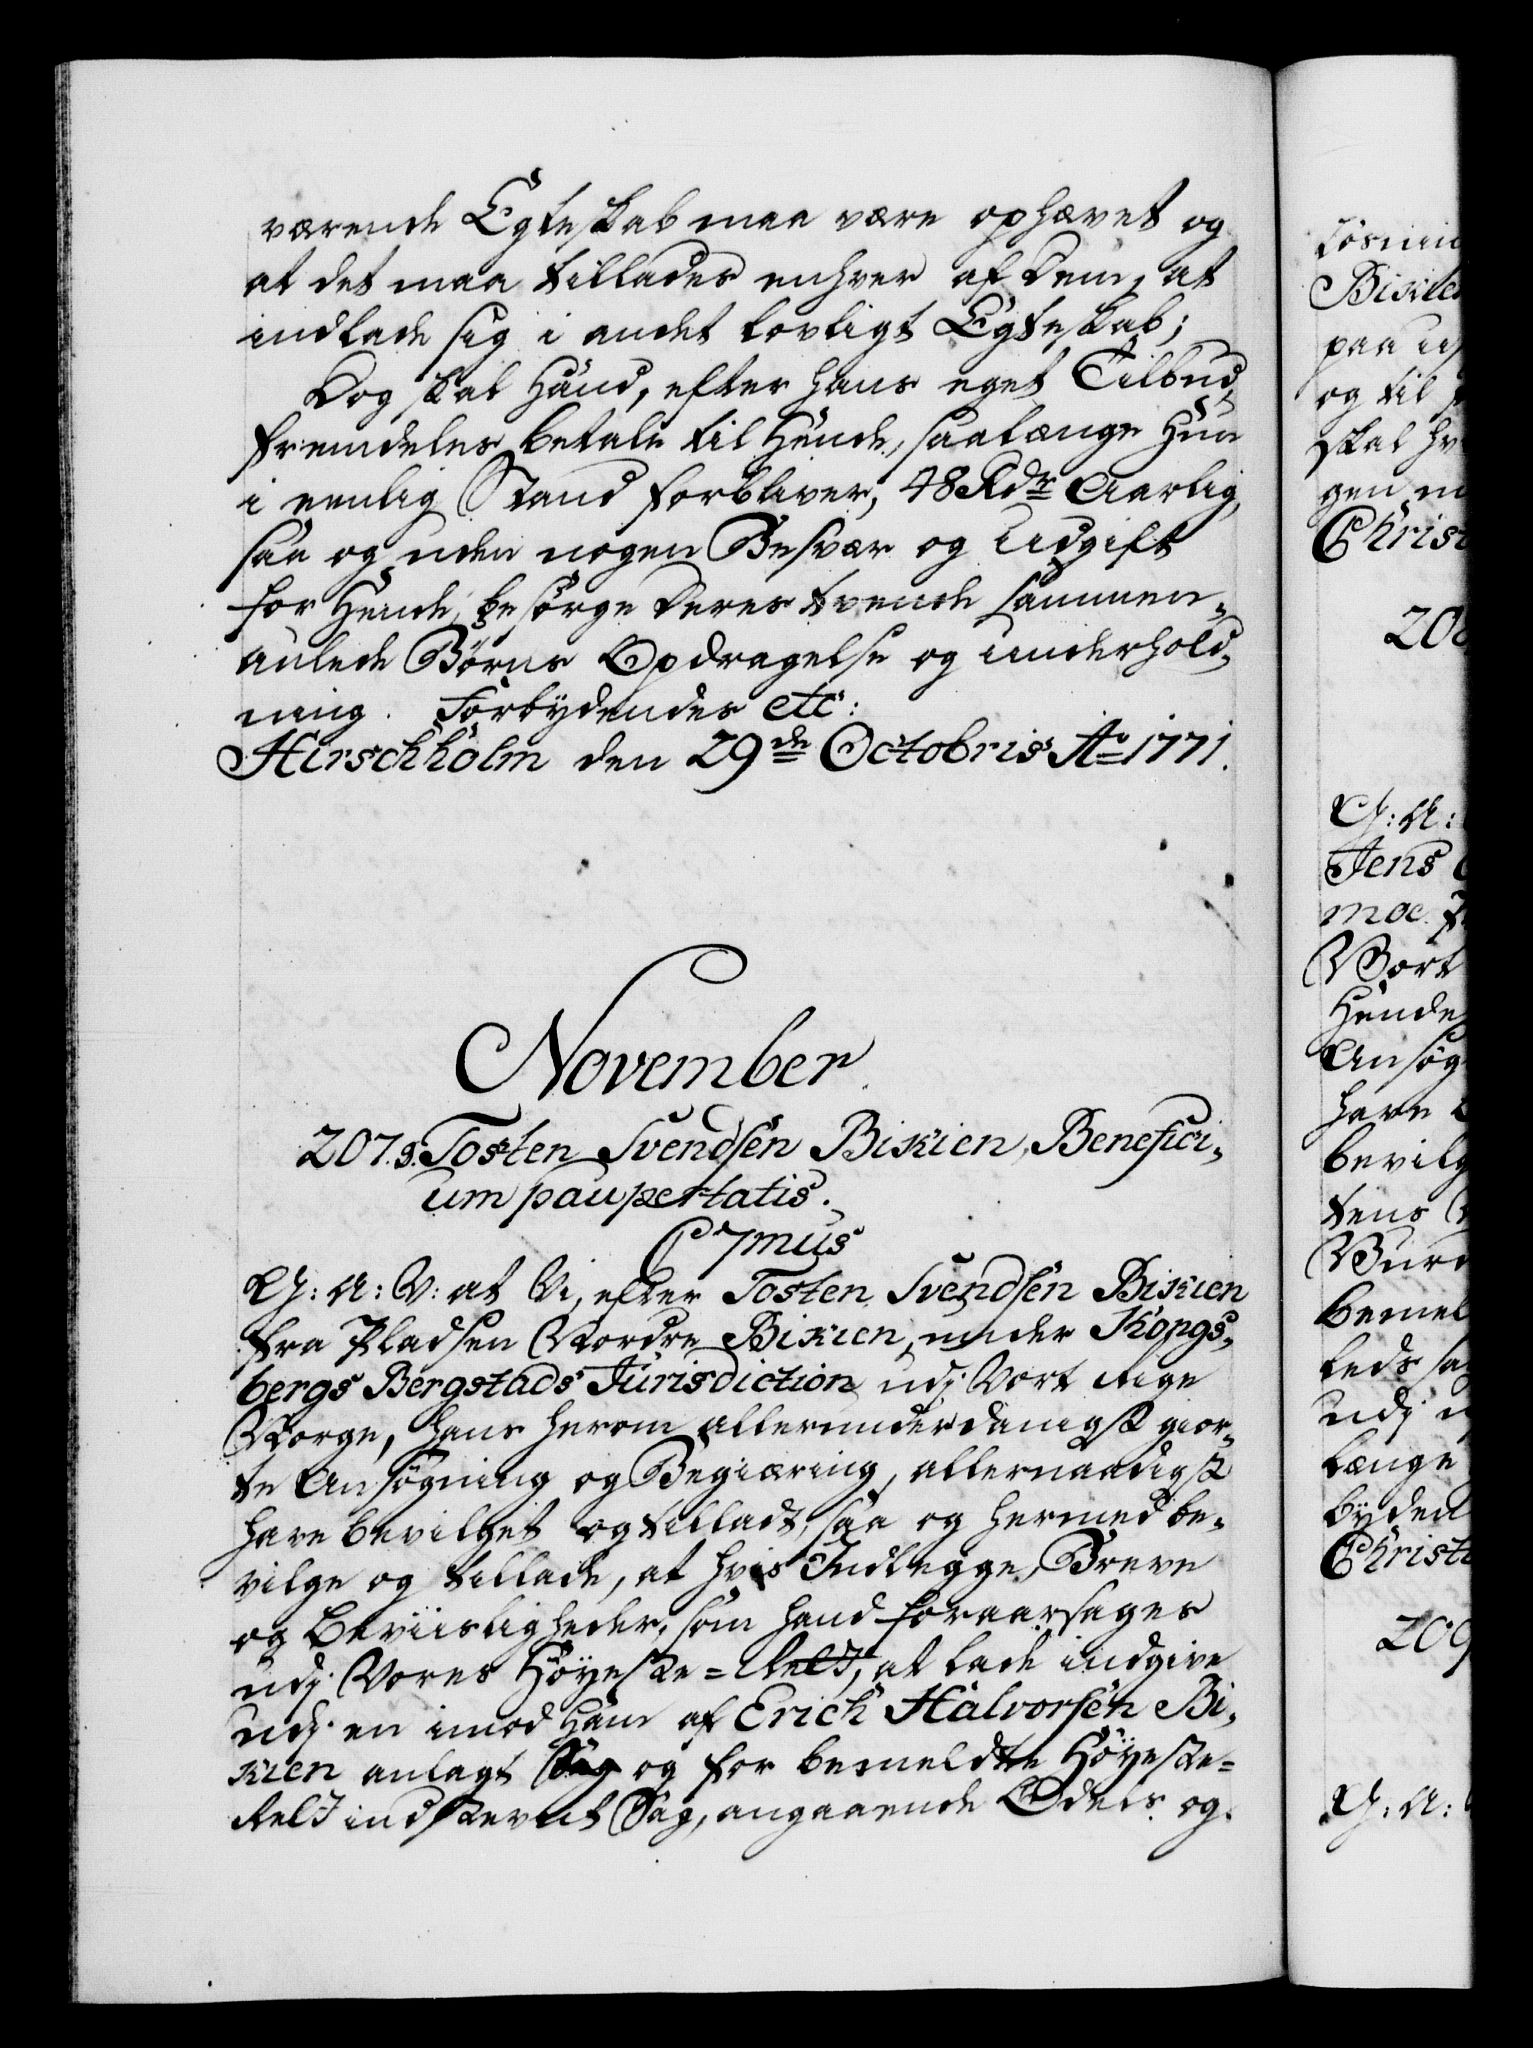 værende Egteskab maa være ophævet og
at det maa tillades enhver af dem, at
indlade sig i andet lovligt Egteskab;
Dog skal Hand, efter hans eget Tilbud,
fremdeles betale til Hende, saalænge Hun
i eenlig Stand forbliver, 48 Rdr Aarlig,
saa og uden nogen Besvær og Udgift
for Hende, besørge deres tvende sammen-
aulede Børns Opdragelse og Underhold-
ning. Forbydendes etc:
Hirschholm den 29de Octobris Ao 1771.
November.
207. s. Tosten Svendsen Bikien, Benefici-
um paupertatis.
C 7mus
G: A: V: at Vi, efter Tosten Svendsen Bikien
fra Pladsen Nordre Bikien, under Kongs-
bergs Bergstads Jurisdiction udj Vort Rige
Norge, hans herom allerunderdanigst gior-
te Ansøgning og Begiæring, allernaadigst
have bevilget og tilladt, saa og hermed be-
vilge og tillade, at hvis Indlegge, Breve
og Beviisligheder, som hand foraarsages
udj Vores Høyeste= Rett, at lade indgive
udj en imod Ham af Erich Halvorsen Bi-
kien anlagt Sag og for bemeldte Høyeste=
Rett indstevnt Sag, angaaende Odels og
Bikien
paa
og til
skal
gen
Christ
208
G: A:
Jens
moe
Vort
Hende
Ansøg
have
bevilg
tens
bemel
leds
udj
længe
byden
Christi
209
G: A: